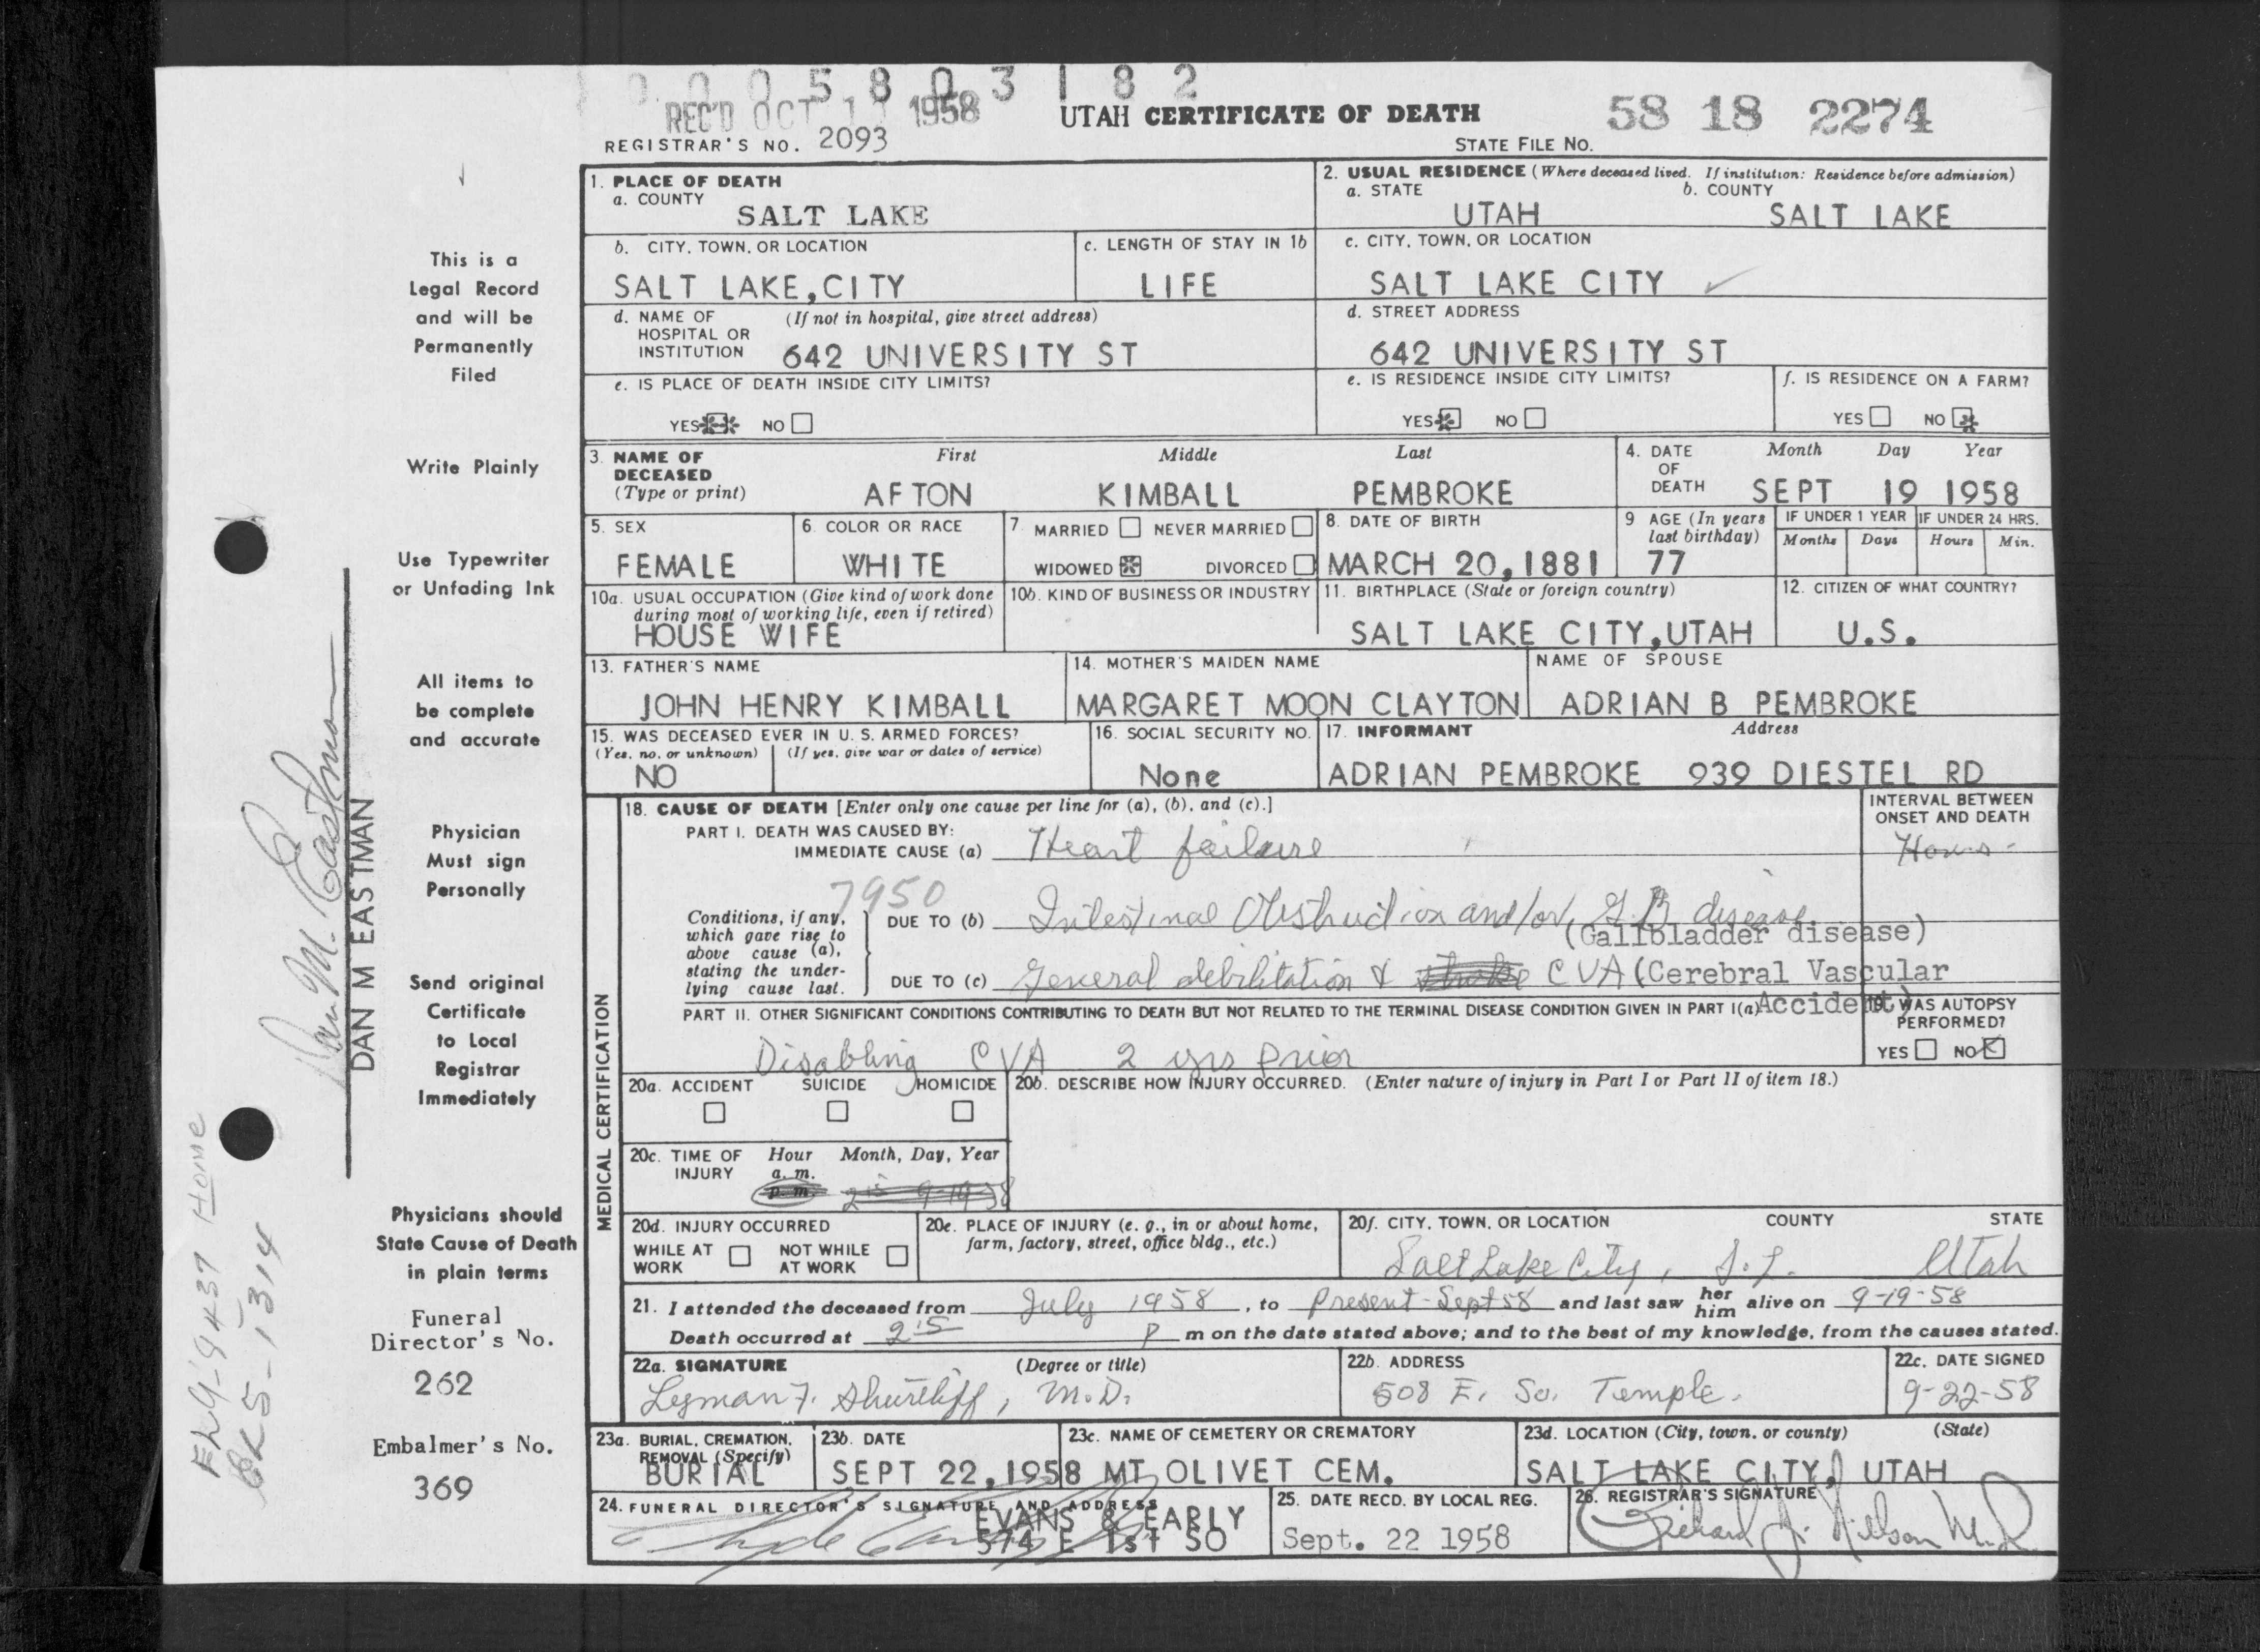 0 0 0 5 8 0 3 1 8 2
REC'D OCT 1 1958
UTAH CERTIFICATE OF DEATH
58 18 2274
REGISTRAR'S NO. 2093
STATE FILE NO.
1. PLACE OF DEATH
a. COUNTY
SALT LAKE
2. USUAL RESIDENCE (Where deceased lived. If institution: Residence before admission)
a. STATE b. COUNTY
UTAH SALT LAKE
b. CITY, TOWN, OR LOCATION
SALT LAKE,CITY
c. LENGTH OF STAY IN 1b
LIFE
c. CITY, TOWN, OR LOCATION
SALT LAKE CITY
d. NAME OF HOSPITAL OR INSTITUTION (If not in hospital, give street address)
642 UNIVERSITY ST
d. STREET ADDRESS
642 UNIVERSITY ST
e. IS PLACE OF DEATH INSIDE CITY LIMITS?
YES NO
e. IS RESIDENCE INSIDE CITY LIMITS?
YES NO
f. IS RESIDENCE ON A FARM?
YES NO
3. NAME OF DECEASED (Type or print)
First Middle Last
AFTON KIMBALL PEMBROKE
4. DATE OF DEATH
Month Day Year
SEPT 19 1958
5. SEX
FEMALE
6. COLOR OR RACE
WHITE
7. MARRIED NEVER MARRIED
WIDOWED DIVORCED
8. DATE OF BIRTH
MARCH 20,1881
9 AGE (In years last birthday)
77
IF UNDER 1 YEAR
Months Days
IF UNDER 24 HRS.
Hours Min.
10a. USUAL OCCUPATION (Give kind of work done
during most of working life, even if retired)
HOUSE WIFE
10b. KIND OF BUSINESS OR INDUSTRY
11. BIRTHPLACE (State or foreign country)
SALT LAKE CITY,UTAH
12. CITIZEN OF WHAT COUNTRY?
U.S.
13. FATHER'S NAME
JOHN HENRY KIMBALL
14. MOTHER'S MAIDEN NAME
MARGARET MOON CLAYTON
NAME OF SPOUSE
ADRIAN B PEMBROKE
15. WAS DECEASED EVER IN U. S. ARMED FORCES?
(Yes, no, or unknown) (If yes, give war or dates of service)
NO
16. SOCIAL SECURITY NO.
None
17. INFORMANT Address
ADRIAN PEMBROKE 939 DIESTEL RD
MEDICAL CERTIFICATION
18. CAUSE OF DEATH [Enter only one cause per line for (a), (b), and (c).]
INTERVAL BETWEEN
ONSET AND DEATH
PART I. DEATH WAS CAUSED BY:
IMMEDIATE CAUSE (a) Heart failure
Hours
7950
Conditions, if any,
which gave rise to
above cause (a),
stating the under-
lying cause last.
DUE TO (b) Intestinal Obstruction and/or G.B disease
(Gallbladder disease)
DUE TO (c) General debilitation & stroke CVA (Cerebral Vascular
Accident)
PART II. OTHER SIGNIFICANT CONDITIONS CONTRIBUTING TO DEATH BUT NOT RELATED TO THE TERMINAL DISEASE CONDITION GIVEN IN PART I(a)
Disabling CVA 2 yrs prior
19. WAS AUTOPSY
PERFORMED?
YES NO
20a. ACCIDENT SUICIDE HOMICIDE
20b. DESCRIBE HOW INJURY OCCURRED. (Enter nature of injury in Part I or Part II of item 18.)
20c. TIME OF INJURY
Hour Month, Day, Year
a. m.
p. m. 2 15 9-19-58
20d. INJURY OCCURRED
WHILE AT WORK NOT WHILE AT WORK
20e. PLACE OF INJURY (e. g., in or about home,
farm, factory, street, office bldg., etc.)
20f. CITY, TOWN, OR LOCATION COUNTY STATE
Salt Lake City, S.L. Utah
21. I attended the deceased from July 1958, to Present - Sept 58 and last saw her him alive on 9-19-58
Death occurred at 2 15 P m on the date stated above; and to the best of my knowledge, from the causes stated.
22a. SIGNATURE (Degree or title)
Lyman F. Shurtliff, M.D.
22b. ADDRESS
508 E. So. Temple.
22c. DATE SIGNED
9-22-58
23a. BURIAL, CREMATION,
REMOVAL (Specify)
BURIAL
23b. DATE
SEPT 22,1958
23c. NAME OF CEMETERY OR CREMATORY
MT OLIVET CEM.
23d. LOCATION (City, town, or county) (State)
SALT LAKE CITY, UTAH
24. FUNERAL DIRECTOR'S SIGNATURE AND ADDRESS
EVANS & EARLY
574 E 1ST SO
25. DATE RECD. BY LOCAL REG.
Sept. 22 1958
26. REGISTRAR'S SIGNATURE
Richard J. Nilson M.D.
This is a
Legal Record
and will be
Permanently
Filed
Write Plainly
Use Typewriter
or Unfading Ink
All items to
be complete
and accurate
Physician
Must sign
Personally
Send original
Certificate
to Local
Registrar
Immediately
Physicians should
State Cause of Death
in plain terms
Funeral
Director's No.
262
Embalmer's No.
369
Dan M. Eastman
DAN M EASTMAN
9437 Home
5-1314